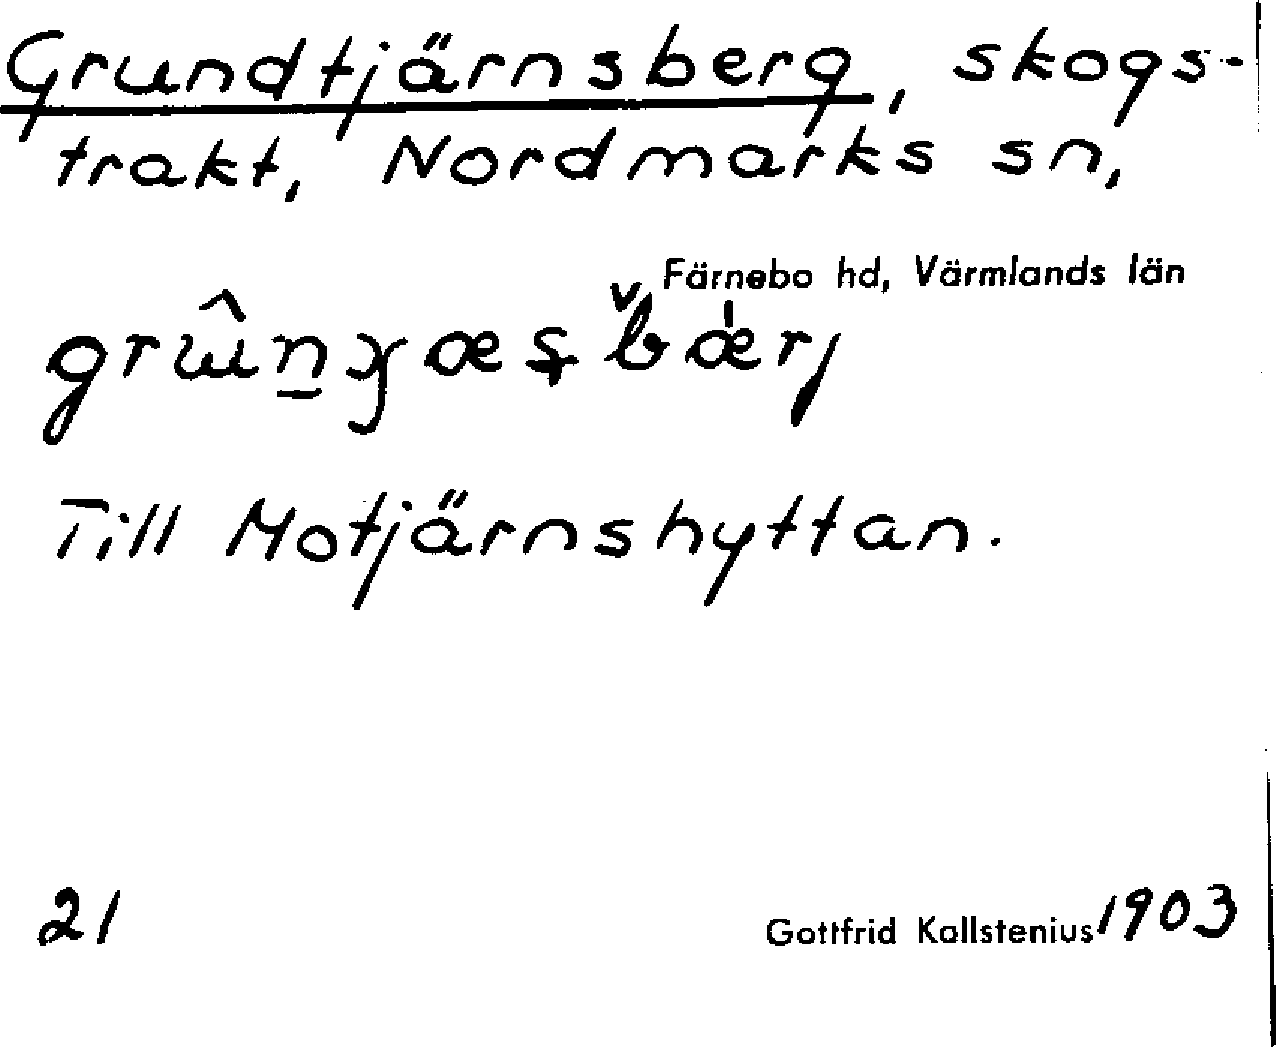 Grundtjärnsberg, skogs-
trakt, Nordmarks sn,
Färnebo hd, Värmlands län
Till Motjärnshyttan.
21
Gottfrid Kallstenius 1903